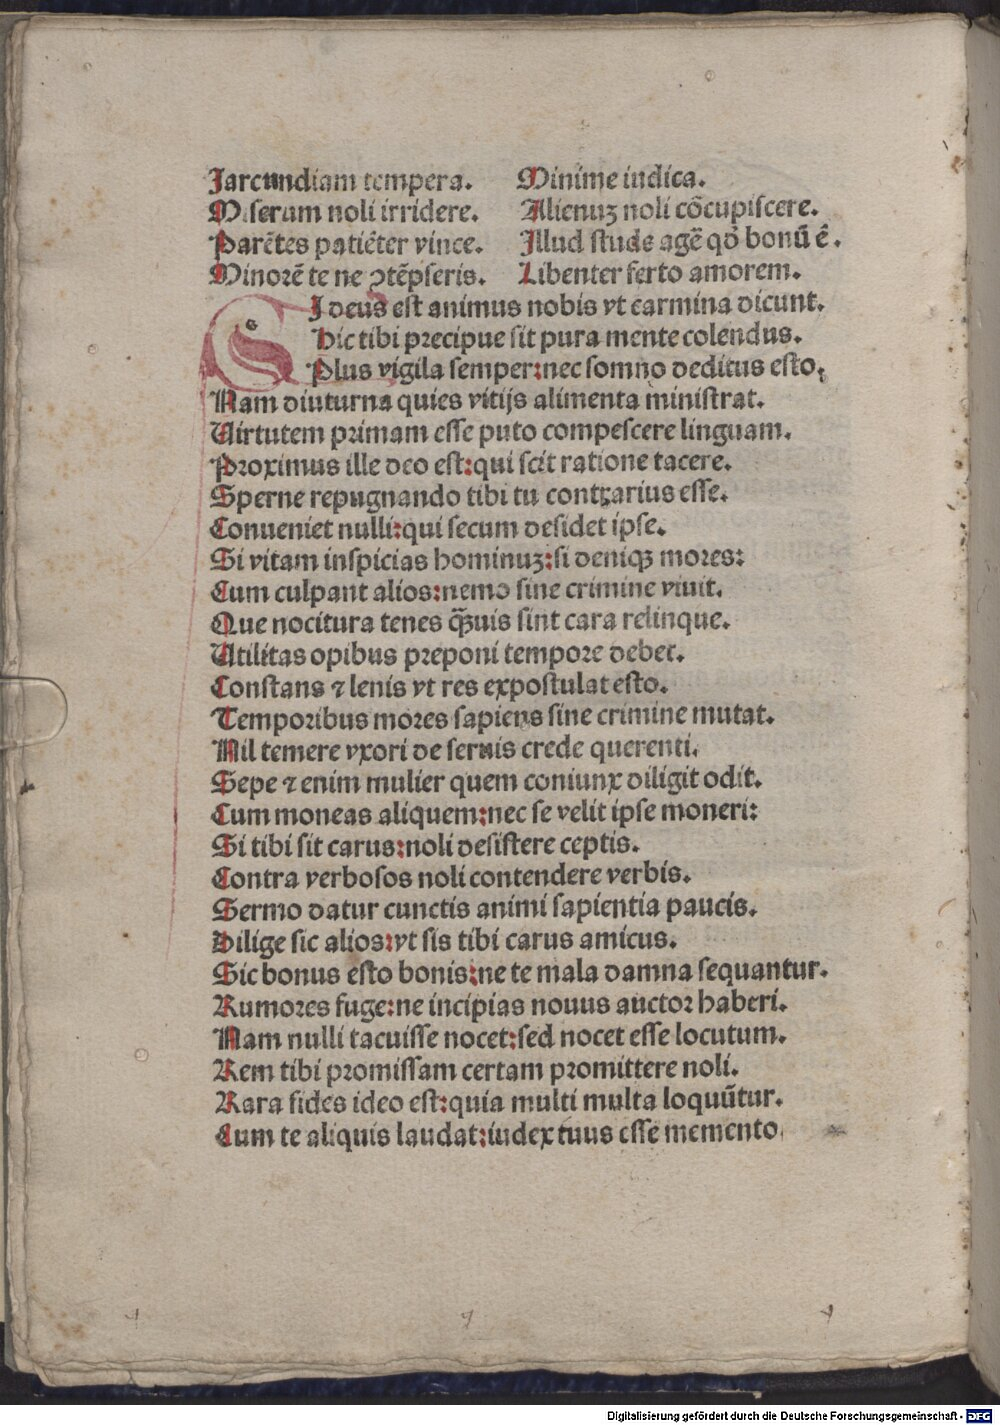 Jarcundiam tempera. Minime iudica.
Miserum noli irridere. Alienuꝫ noli cōcupiscere.
Parētes patiēter vince. Illud stude agē qḋ bonū ē.
Minorē te ne ↄtēpseris. Libenter ferto amorem.
SI deus est animus nobis vt carmina dicunt.
Hic tibi precipue sit pura mente colendus.
Plus vigila semper:nec somno deditus esto.
Nam diuturna quies vitijs alimenta ministrat.
Virtutem primam esse puto compescere linguam.
Proximus ille deo est:qui scit ratione tacere.
Sperne repugnando tibi tu contrarius esse.
Conueniet nulli:qui secum desidet ipse.
Si vitam inspicias hominuꝫ:si deniqꝫ mores:
Cum culpant alios:nemo sine crimine viuit.
Que nocitura tenes q̄ꝫuis sint cara relinque.
Utilitas opibus preponi tempore debet.
Constans ⁊ lenis vt res expostulat esto.
Temporibus mores sapiens sine crimine mutat.
Nil temere vxori de seruis crede querenti.
Sepe ⁊ enim mulier quem coniunx diligit odit.
Cum moneas aliquem:nec se velit ipse moneri:
Si tibi sit carus:noli desistere ceptis.
Contra verbosos noli contendere verbis.
Sermo datur cunctis animi sapientia paucis.
Dilige sic alios:vt sis tibi carus amicus.
Sic bonus esto bonis:ne te mala damna sequantur.
Rumores fuge:ne incipias nouus auctor haberi.
Nam nulli tacuisse nocet:sed nocet esse locutum.
Rem tibi promissam certam promittere noli.
Rara fides ideo est:quia multi multa loquūtur.
Cum te aliquis laudat:iudex tuus esse memento
Digitalisierung gefördert durch die Deutsche Forschungsgemeinschaft - DFG